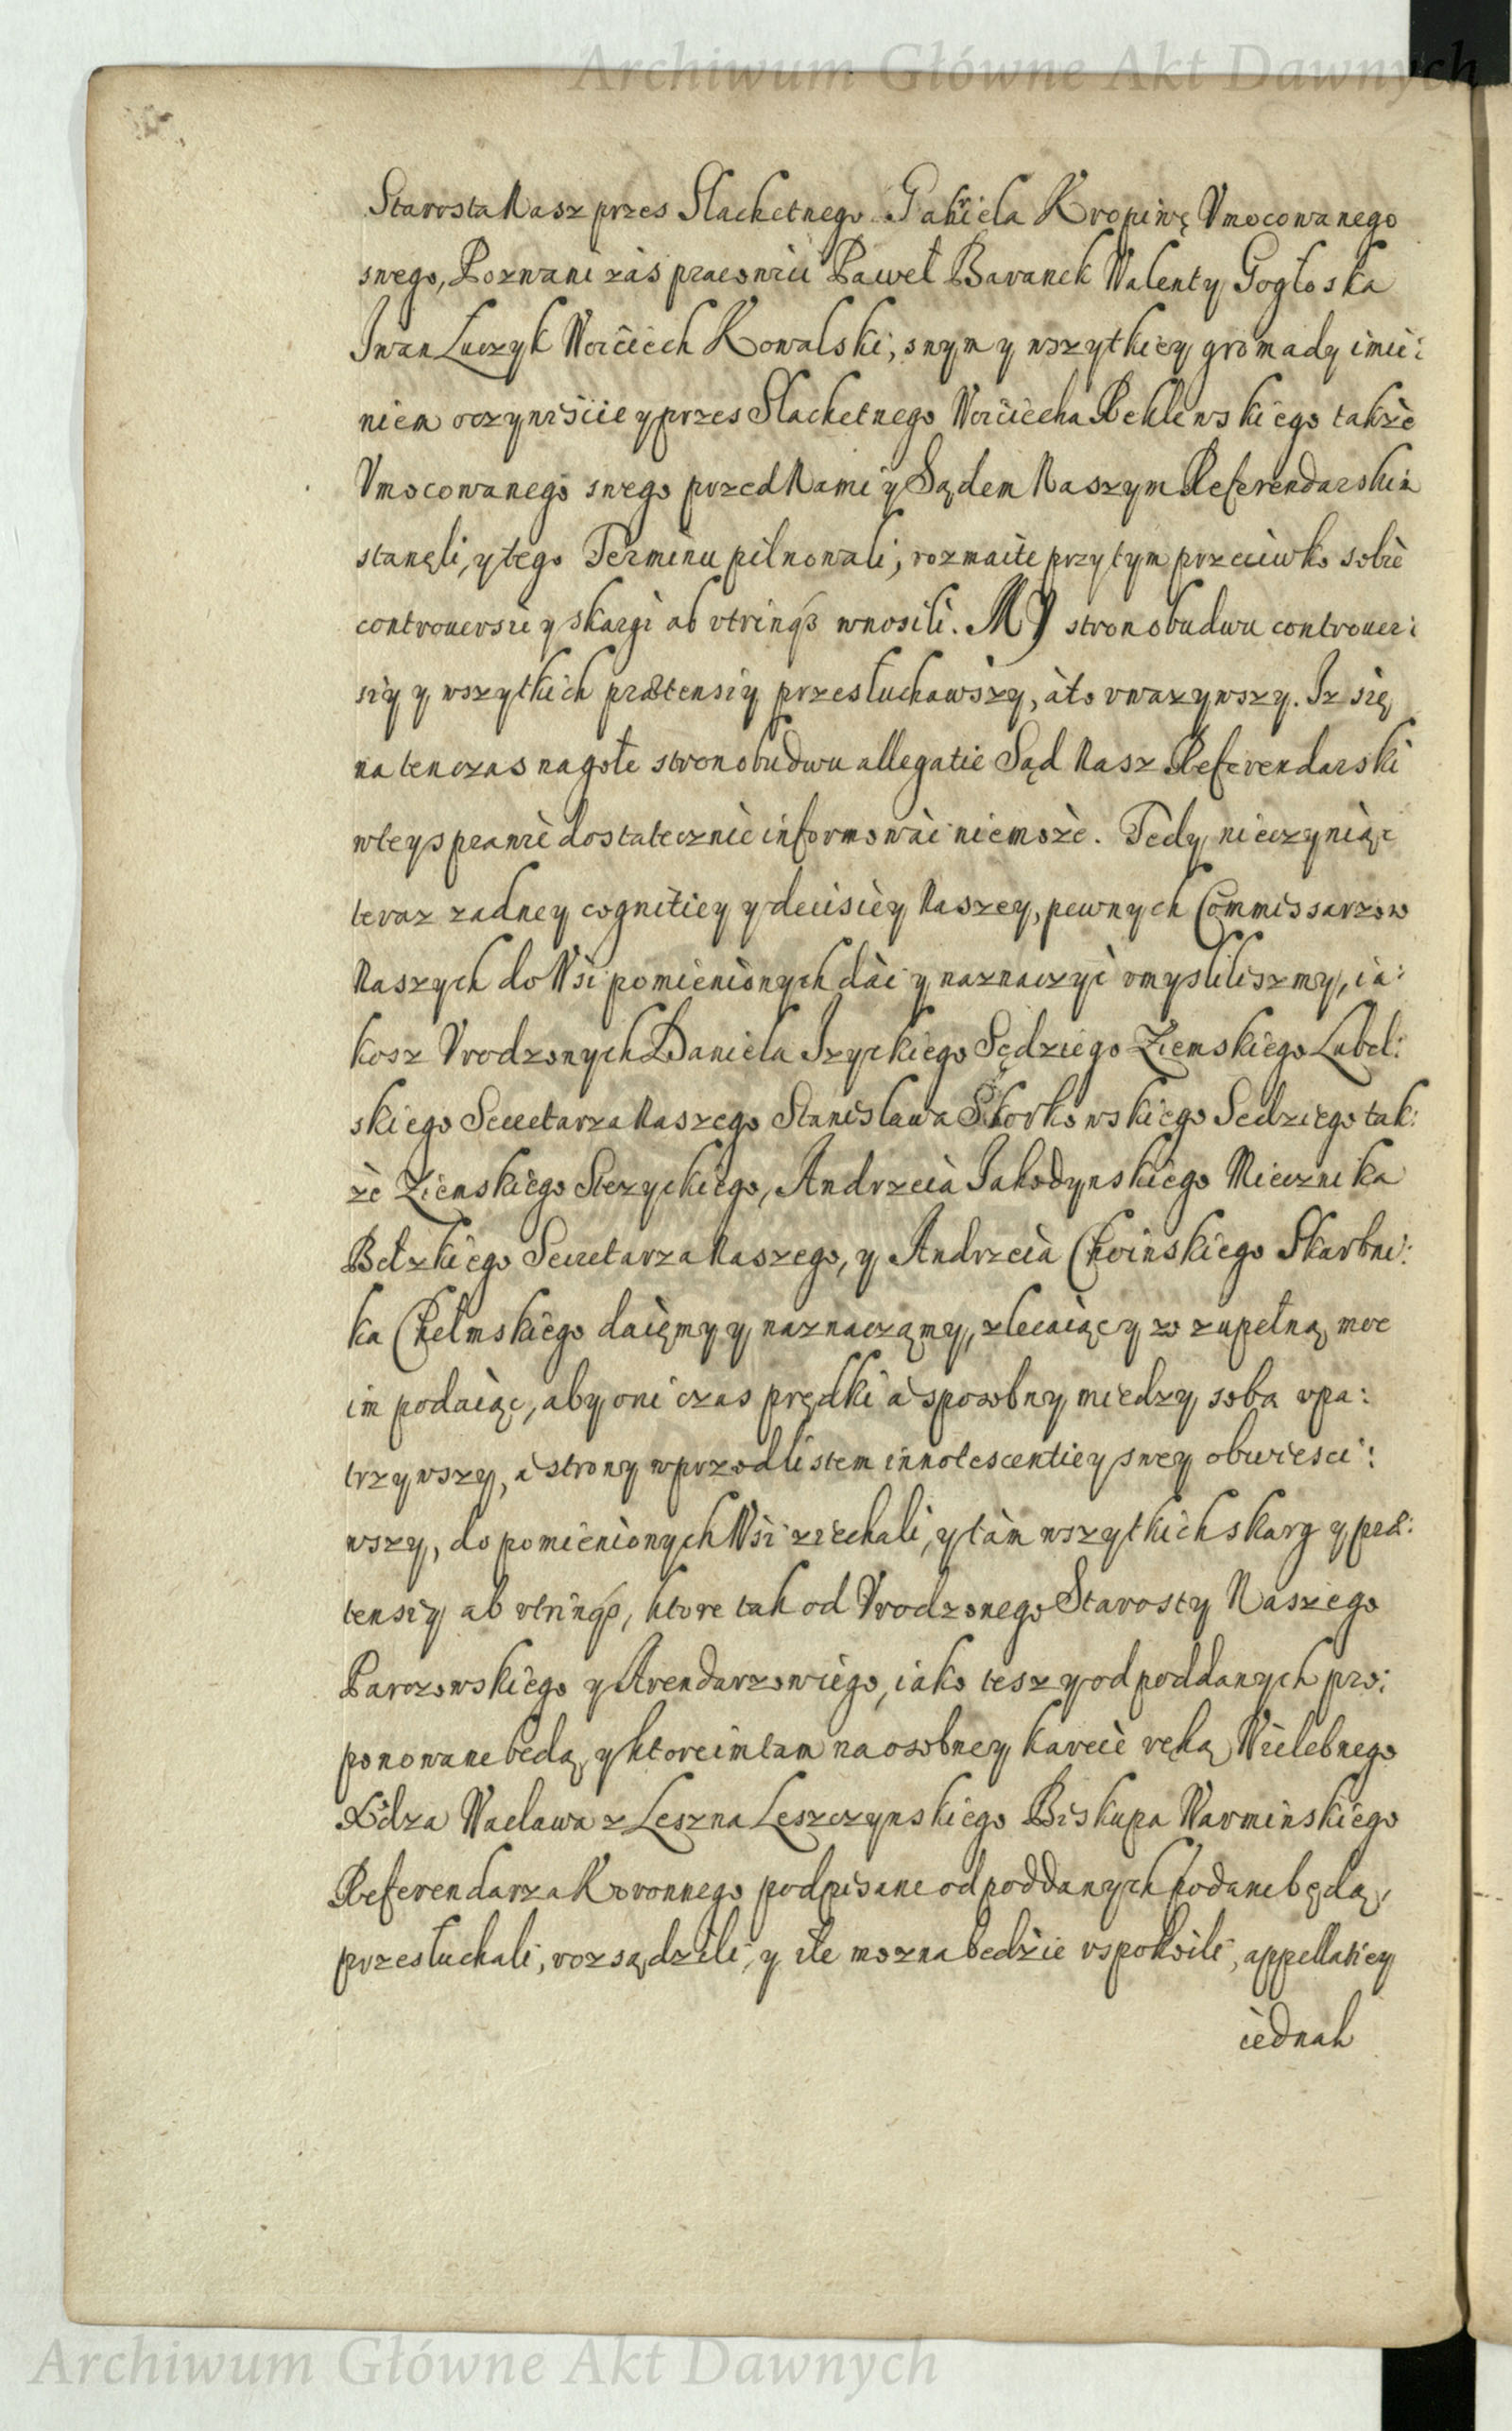 Archiwum Główne Akt Dawnych
Starosta Nasz przes Slachetnego Gabriela Kropiwę Vmocowanego
swego, Pozwani zás pracowici Paweł Baranek Walenty Gogłoska
Iwan Luczyk Woiciech Kowalski, swym y wszytkiey gromady imie:
niem oczywiscie y przes Slachetnego Woiciecha Peklewskiego takze
Vmocowanego swego przed Nami y Sądem Naszym Referendarskim
stanęli, y tego Terminu pilnowali, rozmaite przytym przeciwko sobie
controuersie y skargi ab vtrinqз wnosili. MY stron obudwu controuer:
siy y wszytkich prætensiy przesłuchawszy, áto vwazywszy. Iz się
na tenczas nagołe stron obudwu allegatie Sąd Nasz Referendarski
wtey sprawie dostatecznie informowác niemoze. Tedy nieczyniąc
teraz zadney cognitiey y decisiey Naszey, pewnych Commissarzow
Naszych do Wsi pomienionych dác y naznaczyc vmyslilismy, ia:
kosz Vrodzonych Daniela Izyckiego Sędziego Ziemskiego Lubel:
skiego Secretarza Naszego Stanislawa Skorkowskiego Sedziego tak:
ze Ziemskiego Stezyckiego, Andrzeia Jakodynskiego Miecznika
Bełzkiego Secretarza Naszego, y Andrzeia Choinskiego Skarbni:
ka Chełmskiego daięmy y naznaczamy, zlecaiąc y zo zupełną moc
im podaiąc, aby oni czas prędki á sposobny miedzy sobą vpa:
trzywszy, á strony wprzod listem innotescentiey swey obwiesci:
wszy, do pomienionych Wsi ziechali, y tám wszytkich skarg y præ:
tensiy ab vtrinqз, ktore tak od Vrodzonego Starosty Naszego
Parczowskiego y Arendarzow iego, iako tesz y od poddanych pro:
ponowane bedą, y ktore im tam na osobney karcie ręką Wielebnego
Xdza Waclawa z Leszna Leszczynskiego Biskupa Warminskiego
Referendarza Koronnego podpisane od poddanych podane będą,
przesłuchali, rozsądzili, y ile mozna bedzie vspokoili, appellatiey
iednak
Archiwum Główne Akt Dawnych